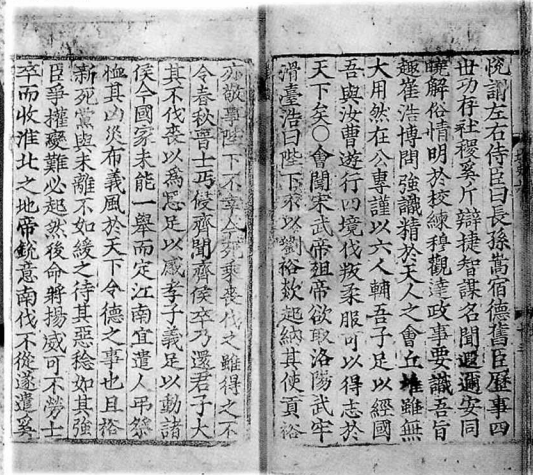 悅謂左右侍臣曰長孫嵩宿德舊臣歷事四
世功存社稷奚斤辯捷智謀名聞遐邇安同
曉解俗情明於校練穆觀達政事要識吾旨
趣崔浩博聞強識精於天人之會丘堆雖無
大用然在公專謹以六人輔吾子足以經國
吾與汝曹遊行四境伐叛柔服可以得志於
天下矣○會聞宋武帝殂帝欲取洛陽武牢
滑臺浩曰陛下不以劉裕欻起納其使貢裕
亦敬事陛下不幸今死乘喪伐之雖得之不
令春秋晉士丐侵齊聞齊侯卒乃還君子大
其不伐喪以為恩足以感孝子義足以動諸
侯今國家未能一舉而定江南宜遣人弔祭
恤其凶災布義風於天下令德之事也且裕
新死黨與未離不如緩之待其惡稔如其強
臣爭權變難必起然後命將揚威可不勞士
卒而收淮北之地帝銳意南伐不從遂遣奚